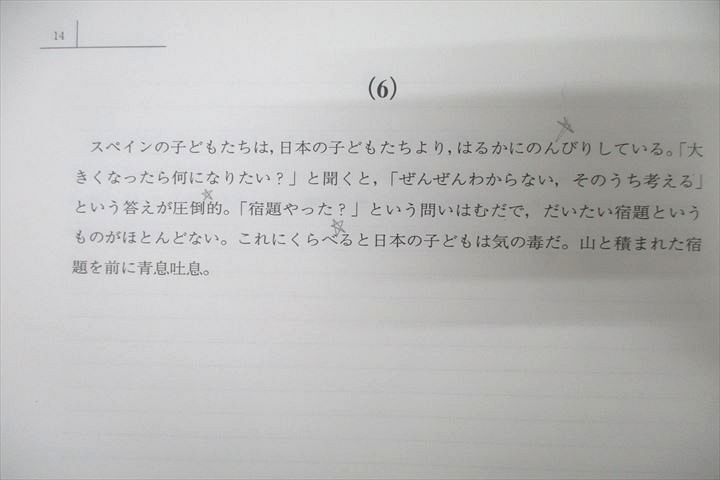 14
(6)
スペインの子どもたちは，日本の子どもたちより，はるかにのんびりしている。「大
きくなったら何になりたい？」と聞くと，「ぜんぜんわからない，そのうち考える」
という答えが圧倒的。「宿題やった？」という問いはむだで，だいたい宿題という
ものがほとんどない。これにくらべると日本の子どもは気の毒だ。山と積まれた宿
題を前に青息吐息。